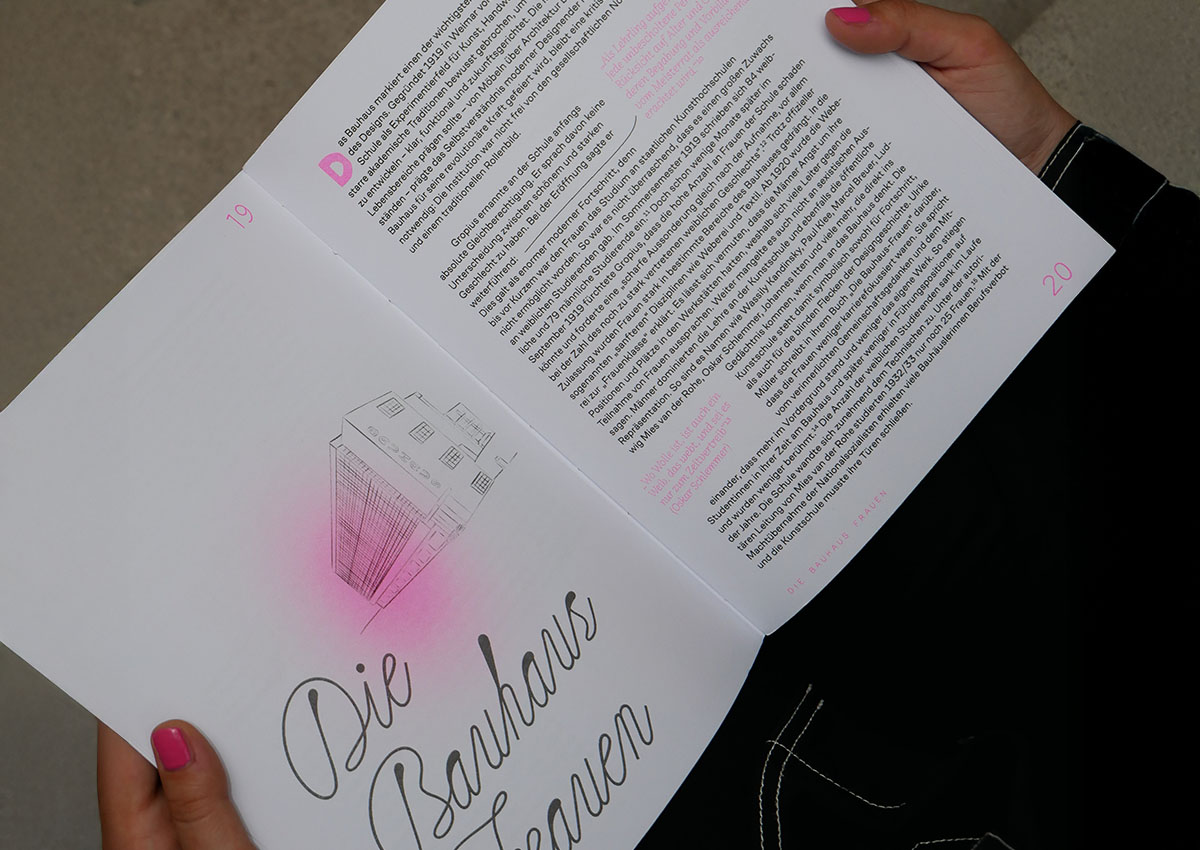 19
Die
Bauhaus
Frauen
as Bauhaus markiert einen der wichtigsten
des Designs. Gegründet 1919 in Weimar vo
D
Schule als Experimentierfeld für Kunst, Handw
starre akademische Traditionen bewusst gebrochen, um
zu entwickeln – klar, funktional und zukunftsgerichtet. Die
Lebensbereiche prägen sollte – von Möbeln über Architektur
ständen –, prägte das Selbstverständnis moderner Designender
Bauhaus für seine revolutionäre Kraft gefeiert wird, bleibt eine kritis
notwendig: Die Institution war nicht frei von den gesellschaftlichen No
und einem traditionellen Rollenbild.
Gropius ernannte an der Schule anfangs
absolute Gleichberechtigung. Er sprach davon keine
Unterscheidung zwischen schönem und starken
Geschlecht zu haben. Bei der Eröffnung sagte er
weiterführend:
„Als Lehrling aufge
jede unbescholtene Per
Rücksicht auf Alter und G
deren Begabung und Vorbild
vom Meisterrat als ausreichend
erachtet wird.“
Dies galt als enormer moderner Fortschritt, denn
bis vor Kurzem war den Frauen das Studium an staatlichen Kunsthochschulen
nicht ermöglicht worden. So war es nicht überraschend, dass es einen großen Zuwachs
an weiblichen Studierenden gab. Im Sommersemester 1919 schrieben sich 84 weib-
liche und 79 männliche Studierende ein.¹¹ Doch schon wenige Monate später im
September 1919 fürchtete Gropius, dass die hohe Anzahl an Frauen der Schule schaden
könnte und forderte eine „scharfe Aussonderung gleich nach der Aufnahme, vor allem
bei der Zahl des noch zu stark vertretenen weiblichen Geschlechts“.¹² Trotz offizieller
Zulassung wurden Frauen stark in bestimmte Bereiche des Bauhauses gedrängt. In die
sogenannten „sanfteren“ Disziplinen wie Weberei und Textil. Ab 1920 wurde die Webe-
rei zur „Frauenklasse“ erklärt. Es lässt sich vermuten, dass die Männer Angst um ihre
Positionen und Plätze in den Werkstätten hatten, weshalb sich viele Leiter gegen die
Teilnahme von Frauen aussprachen. Weiter mangelte es auch nicht an sexistischen Aus-
sagen. Männer dominierten die Lehre an der Kunstschule und ebenfalls die öffentliche
Repräsentation. So sind es Namen wie Wassily Kandinsky, Paul Klee, Marcel Breuer, Lud-
wig Mies van der Rohe, Oskar Schlemmer, Johannes Itten und viele mehr, die direkt ins
Gedächtnis kommen, wenn man an das Bauhaus denkt. Die
Kunstschule steht damit symbolisch sowohl für Fortschritt,
als auch für die blinden Flecken der Designgeschichte. Ulrike
Müller schreibt in ihrem Buch „Die Bauhaus-Frauen“ darüber,
dass die Frauen weniger karrierefokussiert waren. Sie spricht
vom verinnerlichten Gemeinschaftsgedanken und dem Mit-
„Wo Wolle ist, ist auch ein
Weib, das webt, und sei es
nur zum Zeitvertreib“
(Oskar Schlemmer)
einander, dass mehr im Vordergrund stand und weniger das eigene Werk. So stiegen
Studentinnen in ihrer Zeit am Bauhaus und später weniger in Führungspositionen auf
und wurden weniger berühmt.¹⁴ Die Anzahl der weiblichen Studierenden sank im Laufe
der Jahre. Die Schule wandte sich zunehmend dem Technischen zu. Unter der autori-
tären Leitung von Mies van der Rohe studierten 1932/33 nur noch 25 Frauen.¹⁵ Mit der
Machtübernahme der Nationalsozialisten erhielten viele Bauhäuslerinnen Berufsverbot
und die Kunstschule musste ihre Türen schließen.
DIE BAUHAUS FRAUEN
20